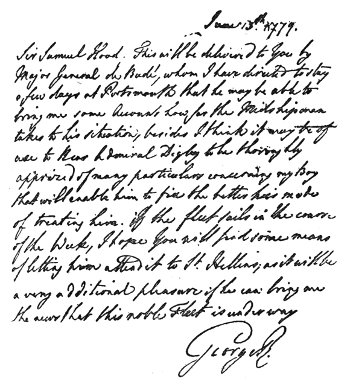 June 13th 1779.
Sir Samuel Hood. This will be delivered to You by
Major General de Budé, whom I have directed to stay
a few days at Portsmouth that he may be able to
bring me some Account how far the Midshipman
takes to his situation, besides I think it may be of
use to Rear Admiral Digby to be thoroughly
apprized of many particulars concerning my Boy
that will enable him to fix the better his mode
of treating him. If the fleet sails in the course
of the Week, I hope You will find some means
of letting him attend it to St. Hellins, as it will be
a very additional pleasure if he can bring me
the news that this noble Fleet is under way
George R.